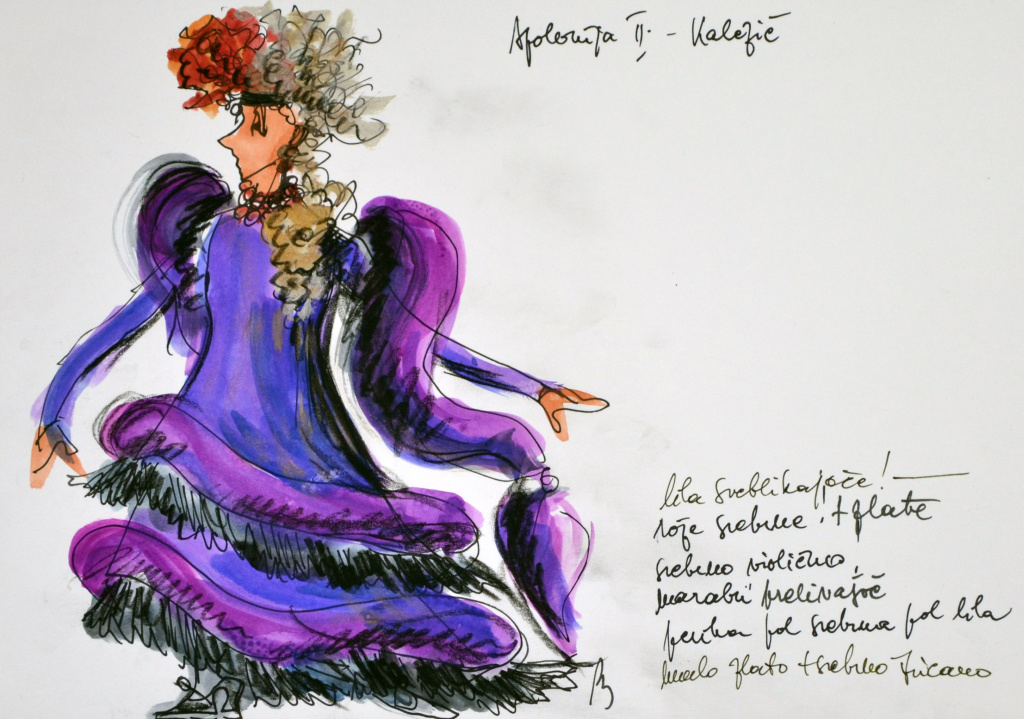 Apolonija II. - Kalezić
lila svetlikajoče!
rože srebrne, + zlate
srebrno vijolično,
marabu prelivajoč
perika pol srebrna pol lila
malo zlato + srebrno